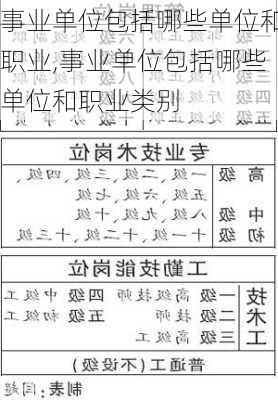 事业单位包括哪些单位和
职业,事业单位包括哪些
单位和职业类别
专业技术岗位
高级 一级、二级、三级、四级、
五级、六级、七级
中级 八级、九级、十级
初级 十一级、十二级、十三级
工勤技能岗位
技术工 一级 高级技师 四级 中级工
二级 技师 五级 初级工
三级 高级工
普通工(不设级)
制表:闫超